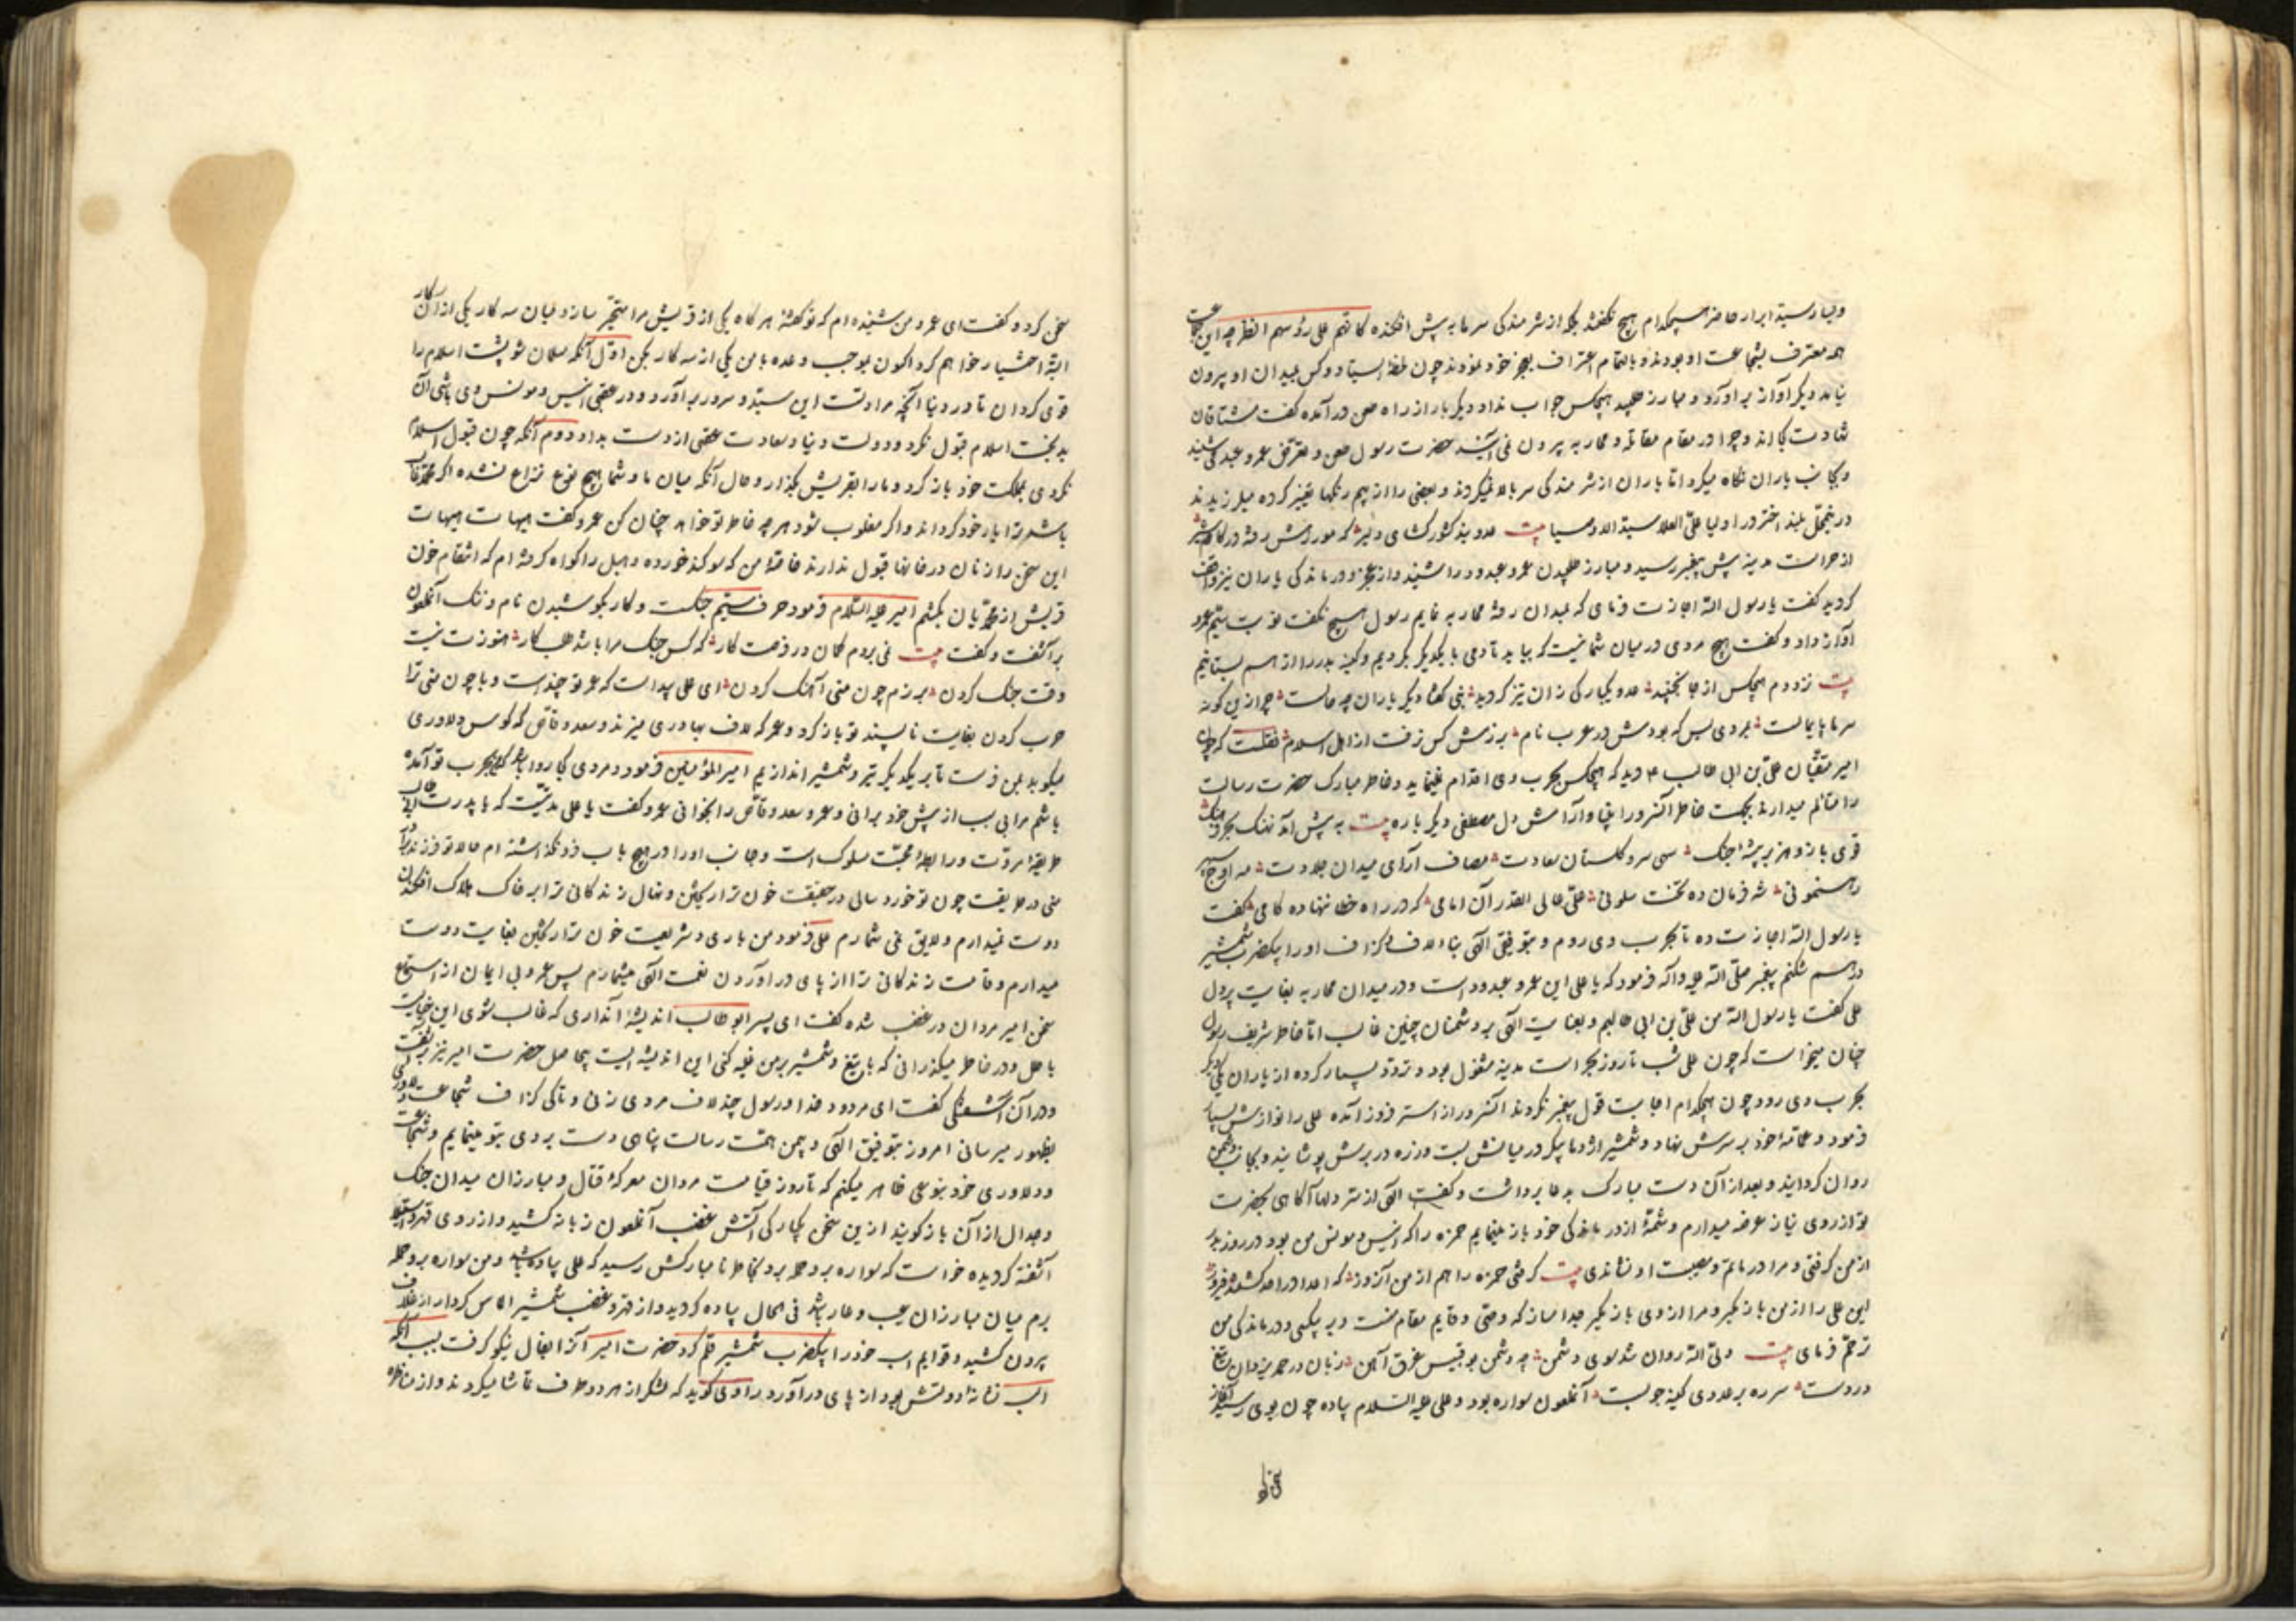 و یسار سید ابرار حاضر هیچکدام هیچ نگفتند بلکه از شرمندگی سرها به پیش افکنده کانهم علی رؤسهم الطیر چه این جماعت
همه معترف بشجاعت او بودند و بالتمام اعتراف بعجز خود نمودند چون لحظهٔ ایستاد و کس بمیدان او بیرون
نیامد دیگر آواز برآورد و مبارز طلبید هیچکس جواب نداد دیگر بار از راه طعن در آمده گفت مشتاقان
شهادت کجااند و چرا در مقام مقاتله و محاربه بیرون نمی آیند حضرت رسول طعن و تعرض عمرو عبد می شنید
و بجانب یاران نگاه میکرد اما یاران از شرمندگی سر بالا نمیکردند و بعضی را از بیم رنگها تغییر کرده میلرزیدند
در برج اختر اولیا علی العلا سید الاوصیا بیت عدو بند کشورگشای دلیر که
از حراست مدینه پیش پیغمبر رسید و مبارز طلبیدن عمرو عبدود را شنید و از عجز و درماندگی یاران نیز واقف
گردید گفت یا رسول الله اجازت فرمای که بمیدان رفته محاربه نمایم رسول هیچ نگفت نوبت سیم عمرو
آواز داد و گفت هیچ مردی در میان شما نیست که بیاید تا دمی با یکدیگر بگردیم و کینه بدر را از هم بستانیم
بیت نزد دم هیچکس از جا نجنبید عدو یکبارگی زان نیز گردید نبی گفتا دگر یاران چه حالست چرا زین گونه
سرها پایمالست بمردی بس که بودش در عرب نام برزمش کس نرفت از اهل اسلام نقلست که چون
امیر متقیان علی بن ابی طالب ع دید که هیچکس بحرب وی اقدام نمینماید و خاطر مبارک حضرت رسالت
را متالم میدارند بجهت خاطر آن سرور انبیا و آرامش دل مصطفی دیگر باره بیت به پیش آمد نهنگ بحر
قوی بازو هزبر بیشهٔ جنگ سهی سرو گلستان سعادت مصاف آرای میدان جلادت مه اوج سپهر
رهنمونی شه فرمان ده تخت سلونی علی عالی القدر آن امامی که در راه خطا ننهاده گامی گفت
یا رسول الله اجازت ده تا بحرب وی روم و بتوفیق الهی بناء لاف و گزاف او را بیکضرب شمشیر
درهم شکنم پیغمبر صلی الله علیه و آله فرمود که یا علی این عمرو عبدودست و در میدان محاربه بغایت پردل
علی گفت یا رسول الله من علی بن ابی طالبم و بعنایت الهی بر دشمنان چنین غالب اما خاطر شریف رسول
چنان میخواست که چون علی شب تا روز بحراست مدینه مشغول بود و تردد بسیار کرده از یاران یکی دیگر
بحرب وی رود چون هیچکدام اجابت قول پیغمبر نکردند آن سرور از استر فرود آمده علی را نوازش بسیار
فرمود و عمامهٔ خود بر سرش نهاد و شمشیر اژدها پیکر در میانش بست و زره در برش پوشانید و بجانب دشمن
روان گردانید و بعد از آن دست مبارک بدعا برداشت و گفت الهی از ستر دلها آگاهی بحضرت
تو از روی نیاز عرضه میدارم و شمهٔ از درماندگی خود باز مینمایم حمزه را که انیس و مونس من بود در روز بدر
از من گرفتی و مرا در ماتم و مصیبت او نشاندی بیت گرفتی حمزه را هم از من آنروز که اعدا در احد گشتند فیروز
این علی را از من باز مگیر و مرا از وی باز مگیر جدا مساز که وصی و قایم مقام منست و بر بیکسی و درماندگی من
ترحم فرمای بیت ولی الله روان شد سوی دشمن چه دشمن بو قبیس غرق آهن زبان در حمد یزدان تیغ
در دست سر ره بر عدوی کینه جو بست آنملعون سواره بود و علی علیه السلام پیاده چون بوی رسید آغاز
سخن کرد و گفت ای عمرو من شنیده ام که تو گفتهٔ هرگاه یکی از قریش مرا متحیر سازد میان سه کار یکی از آن کار
البته اختیار خواهم کرد اکنون بموجب وعده با من یکی از سه کار بکن اول آنکه مسلمان شو پشت اسلام را
قوی گردان تا در دنیا آنچه مرادتست این سید و سرور برآورد و در عقبی انیس و مونس وی باشی آن
بدبخت اسلام قبول نکرد و دولت دنیا و سعادت عقبی از دست بداد دوم آنکه چون قبول اسلام
نکردی بملکت خود باز گرد و ما را بقریش بگذار و حال آنکه میان ما و شما هیچ نوع نزاع نشده اگر محمد غالب
باشد ترا یار خود گرداند و اگر مغلوب شود هر چه خاطر تو خواهد چنان کن عمرو گفت هیهات هیهات
این سخن را زنان در خانها قبول ندارند خاصه من که سوگند خورده و هبل را گواه گرفته ام که انتقام خون
قریش از محمدیان بکشم امیر علیه السلام فرمود حرف سیم جنگست و کار بکوشیدن نام و ننگ آنملعون
برآشفت و گفت بیت نمی بردم گمان در فرصت کار که کس جنگ مرا باشد طلب کار هنوزت نیست
وقت جنگ کردن برزم چون منی آهنگ کردن ای علی پیداست که عمر تو چند است و با چون منی ترا
حرب کردن بغایت ناپسند تو باز گرد و عمر که لاف بهادری میزند و سعد وقاص که کوس دلاوری
میکوبد بمن فرست تا بر یکدیگر تیر و شمشیر اندازیم امیر المؤمنین فرمود و مردی کجا روا باشد که من بحرب تو آمده
باشم مرا بی سبب از پیش خود برانی و عمر و سعد وقاص را بخوانی عمرو گفت یا علی مدتیست که با پدرت ابی طالب
طریقهٔ مروت و رابطهٔ محبت سلوک است و جانب او را در هیچ باب فرو نگذاشته ام حالا تو فرزند
منی در طریقت چون تو خورد سالی در حقیقت خون ترا ریختن و نهال زندگانی ترا بر خاک هلاک افکندن
دوست نمیدارم و لایق نمی شمارم علی فرمود من باری در شریعت خون ترا ریختن بغایت دوست
میدارم و قامت زندگانی ترا از پای در آوردن نعمت الهی میشمارم پس عمرو بی ایمان از استماع
سخن امیر مردان در غضب شده گفت ای پسر ابوطالب اندیشهٔ آنداری که غالب شوی این خیالیست
باطل و در خاطر میگذرانی که با تیغ و شمشیر بر من غلبه کنی این اندیشه ایست بیحاصل حضرت امیر نیز برآشفت
و در آن آشفتگی گفت ای مردود خدا و رسول چند لاف مردی زنی و تا کی گزاف شجاعت و دلاوری
بظهور میرسانی امروز بتوفیق الهی و بیمن همت رسالت پناهی دست بردی بتو بنمایم و شجاعت
و دلاوری خود بنوعی ظاهر میکنم که تا روز قیامت مردان معرکهٔ قتال و مبارزان میدان جنگ
و جدال از آن باز گویند از این سخن یکبارگی آتش غضب آنملعون زبانه کشید و از روی قهر و
آشفته گردیده خواست که سواره برو حمله برد بخاطر نامبارکش رسید که علی پیاده باشد و من سواره برو حمله
برم میان مبارزان عیب و عار باشد فی الحال پیاده گردید و از قهر و غضب شمشیر الماس کردار از غلاف
بیرون کشید و قوایم اسب خود را بیکضرب شمشیر قلم کرد حضرت امیر آنرا بفال نیکو گرفت بسبب آنکه
اسب نشانهٔ دولتش بود از پای در آورد راوی گوید که لشکر از هر دو طرف تماشا میکردند و از مناظره
سخن کرد